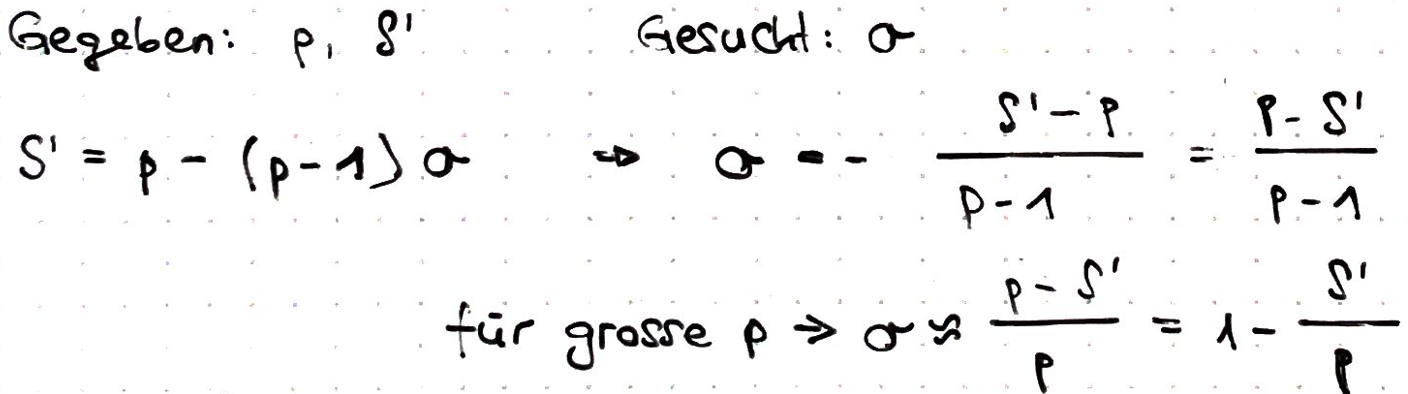 Gegeben: p, S' Gesucht: σ
S' = p - (p-1) σ ⇒ σ = - (S' - p)/(p - 1) = (p - S')/(p - 1)
für grosse p → σ ≈ (p - S')/p = 1 - S'/p